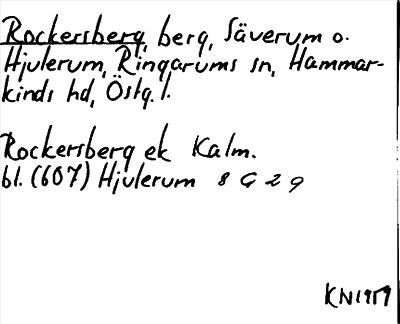 Rockersberg, berg, Säverum o.
Hjulerum, Ringarums sn, Hammar-
kinds hd, Östg. l.
Rockersberg ek Kalm.
bl. (607) Hjulerum 8 G 2 g
KN1919